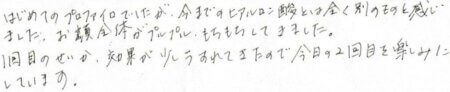 はじめてのプロファイロでしたが、今までのヒアルロン酸とは全く別のものを感じ
ました。お顔全体がプルプル、もちもちしてきました。
1回目のせいか、効果が少しうすれてきたので今日の2回目を楽しみに
しています。